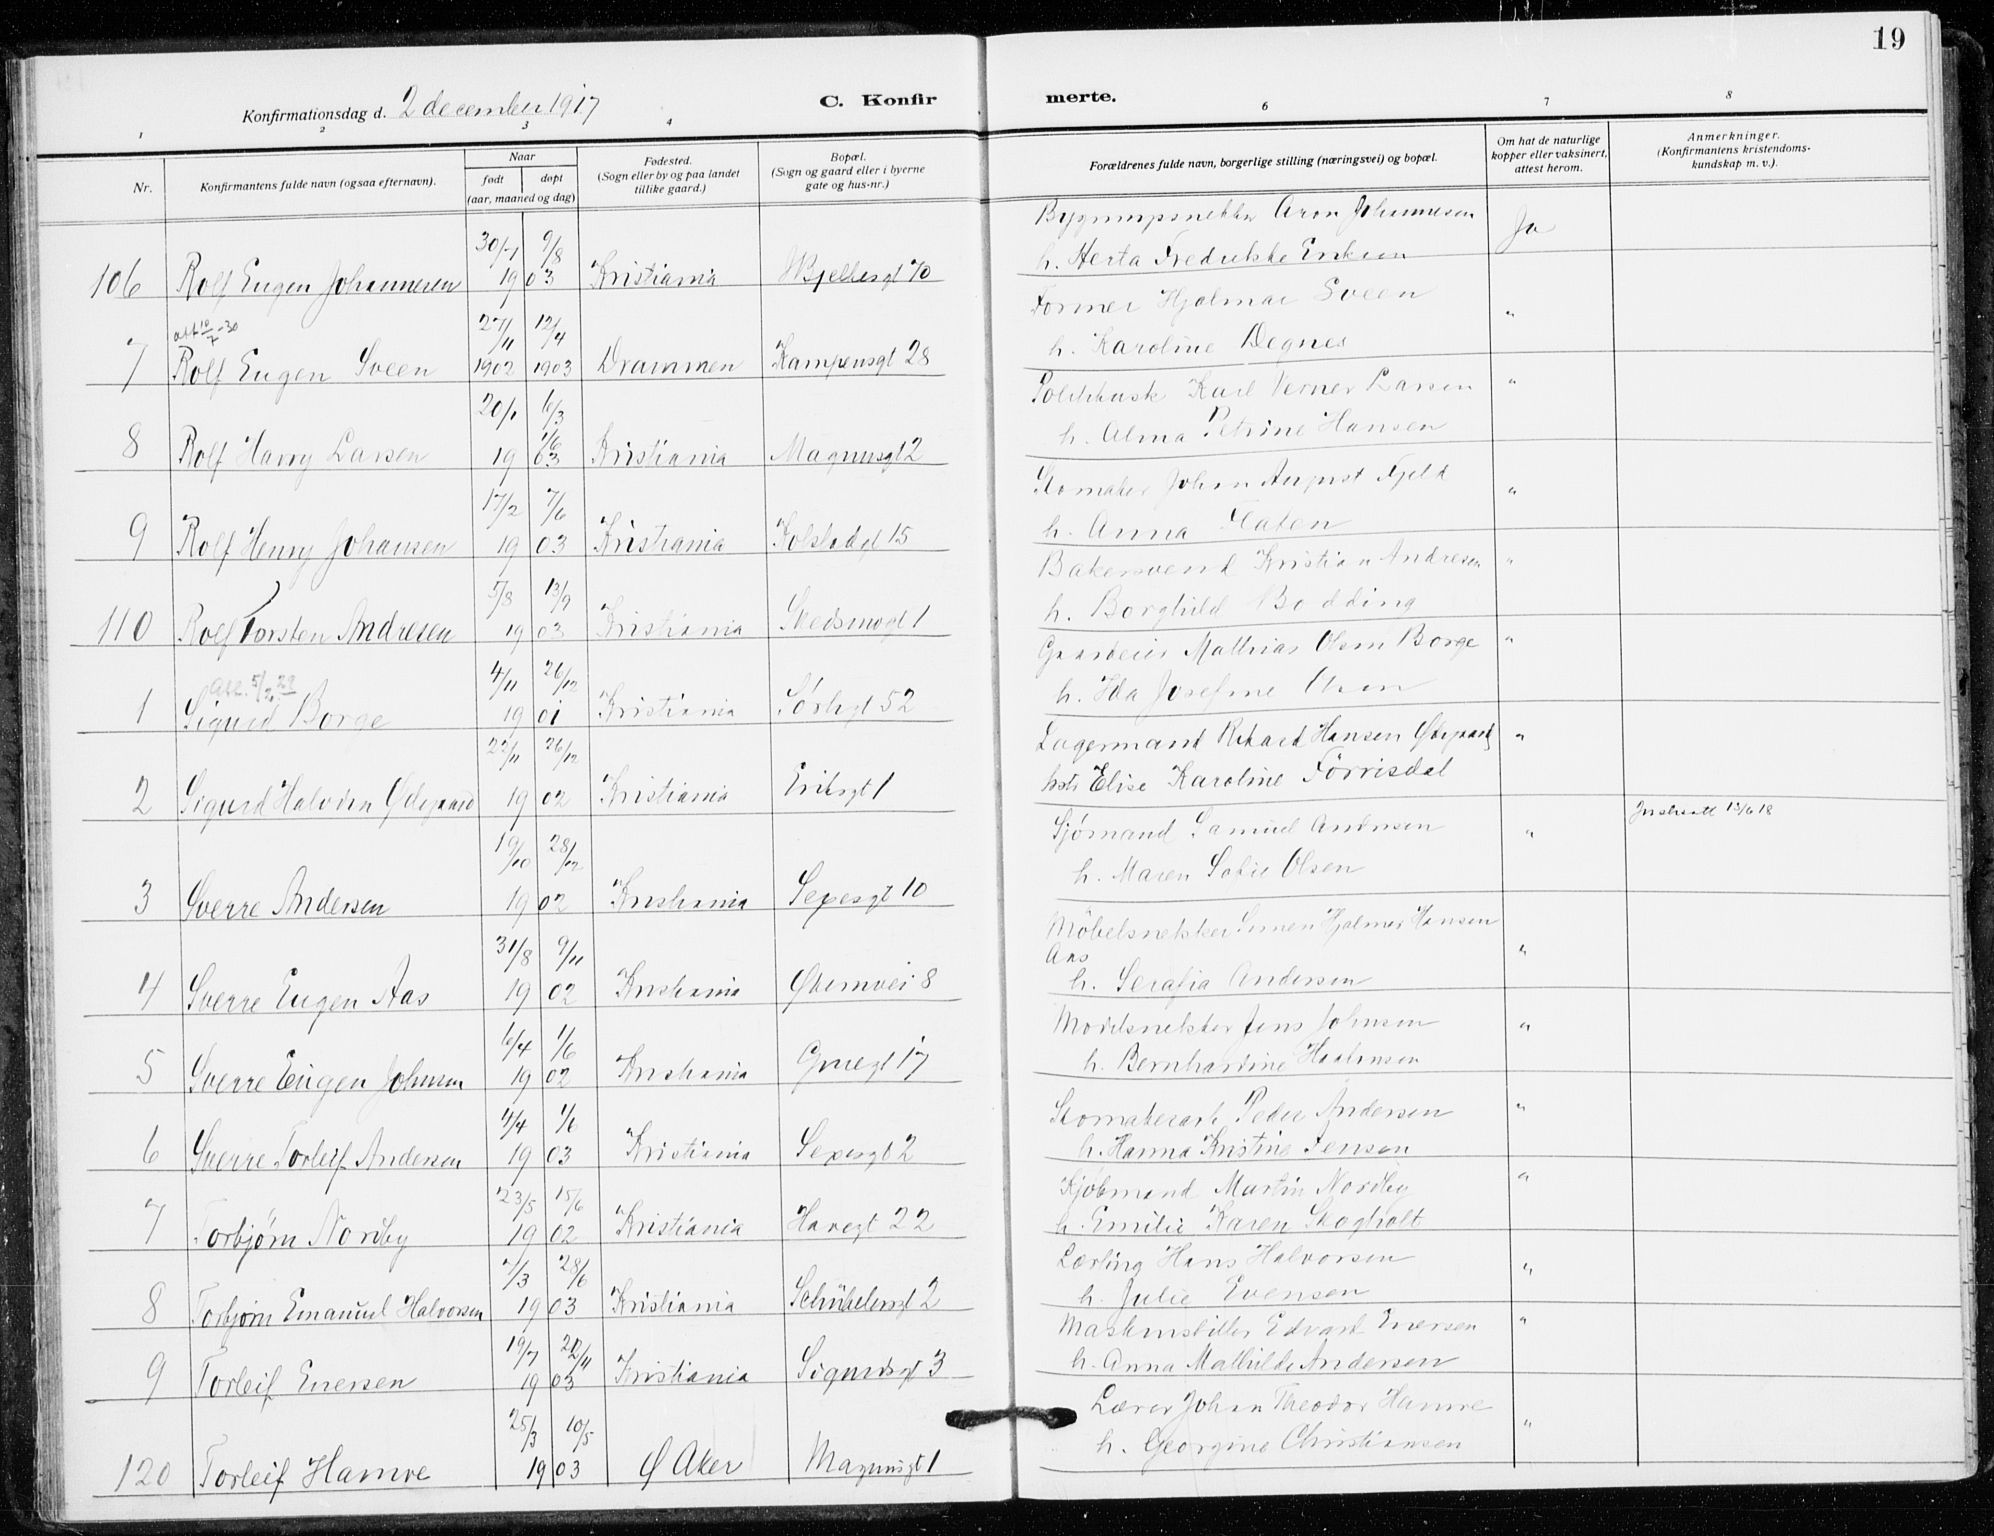 19
Konfirmationsdag d. 2 december 1917
C. Konfirmerte.
1 2 3 4 6 7 8
Nr.
Konfirmantens fulde navn (ogsaa efternavn).
Naar
født døpt
(aar, maaned og dag)
Fødested.
(Sogn eller by og paa landet
tillike gaard.)
Bopæl.
(Sogn og gaard eller i byerne
gate og hus-nr.)
Forældrenes fulde navn, borgerlige stilling (næringsvei) og bopæl.
Om hat de naturlige
kopper eller vaksinert,
attest herom.
Anmerkninger.
(Konfirmantens kristendoms-
kundskap m. v.).
Aron Johannesen Ja
30/7 9/8
106 Rolf Eugen Johannesen 19 03 Kristiania 70
h. Herta Fredrikke Eriksen
att 10/7-30
27/11 12/4
Former Hjalmar Sveen "
7 Rolf Eugen Sveen 1902 1903 Drammen Kampensgt 28
h. Karoline Degnes
20/1 6/3
Karl Verner Larsen "
1/6
8 Rolf Harry Larsen 19 03 Kristiania Magnusgt 2
h. Alma Petrine Hansen
17/2 7/6
Skomaker Johan August Fjeld "
9 Rolf Henry Johansen 19 03 Kristiania Kolstadgt 15
h. Anna Flaten
5/8 13/9
Bakersvend Kristian Andresen "
110 Rolf Torsten Andresen 19 03 Kristiania Skedsmogt 1
h. Borghild Bodding
Att. 5/2 29
4/11 26/12
Gaardeier Mathias Olsen Borge "
1 Sigurd Borge 19 01 Kristiania Sørligt 52
h. Ida Josefine Olsen
22/11 26/12
Lagermand Rikard Hansen Ødegaard "
2 Sigurd Halvdan Ødegaard 19 02 Kristiania Eriksgt 1
hst Elise Karoline Førrisdal
19/10 28/12
Sjømand Samuel Andersen " 13/6 18
3 Sverre Andersen 19 02 Kristiania Sexesgt 10
h. Maren Sofie Olsen
31/8 9/11
Møbelsnekker Simen Hjalmar Hansen
Aas "
4 Sverre Eugen Aas 19 02 Kristiania Økernvei 8
h. Serafia Andersen
6/4 1/6
Modelsnekker Jens Johnsen "
5 Sverre Eugen Johnsen 19 02 Kristiania Gruegt 17
h. Bernhardine Haakensen
4/4 1/6
Skomakerarb Peder Andersen "
6 Sverre Torleif Andersen 19 03 Kristiania Sexesgt 2
h. Hanna Kristine Jensen
23/5 15/6
Kjøbmand Martin Nordby "
7 Torbjørn Nordby 19 02 Kristiania Havegt 22
h. Emilie Karen Skogholt
7/3 28/6
Lærling Hans Halvorsen "
8 Torbjørn Emanuel Halvorsen 19 03 Kristiania Schübelersgt 2
h. Julie Evensen
19/7 22/11
Maskinstiller Edvard Enersen "
9 Torleif Enersen 19 03 Kristiania Sigurdsgt 3
h. Anna Mathilde Andersen
25/3 10/5
Lærer Johan Theodor Hamre "
120 Torleif Hamre 19 03 Ø Aker Magnusgt 1
h. Georgine Christiansen